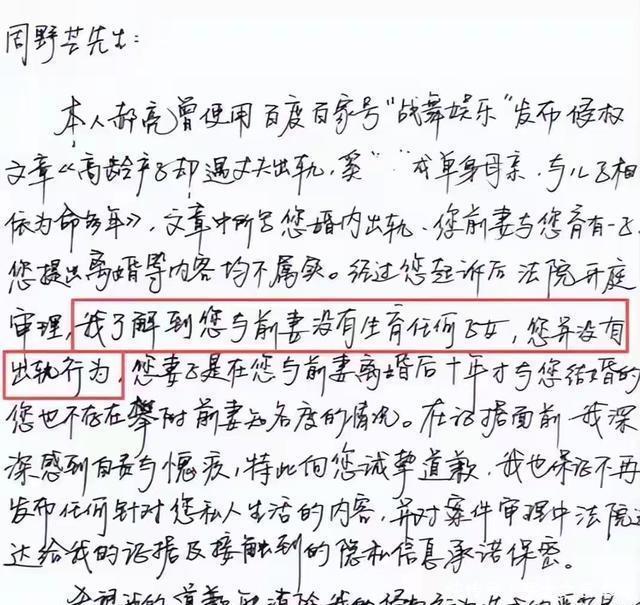 周野芒先生:
本人郝亮曾使用百度百家号"战舞娱乐"发布侵权
文章《高龄产子却遇丈夫出轨,奚" "成单身母亲,与儿子相
依为命多年》,文章中所写您婚内出轨、您前妻与您育有一子、
您提出离婚等内容均不属实。经过您起诉后法院开庭
审理,我了解到您与前妻没有生育任何子女,您并没有
出轨行为,您妻子是在您与前妻离婚后十年才与您结婚的
您也不存在攀附前妻知名度的情况。在证据面前我深
深感到自责与愧疚,特此向您诚挚道歉,我也保证不再
发布任何针对您私人生活的内容,并对案件审理中法院送
达给我的证据及接触到的隐私信息承诺保密。
的道歉